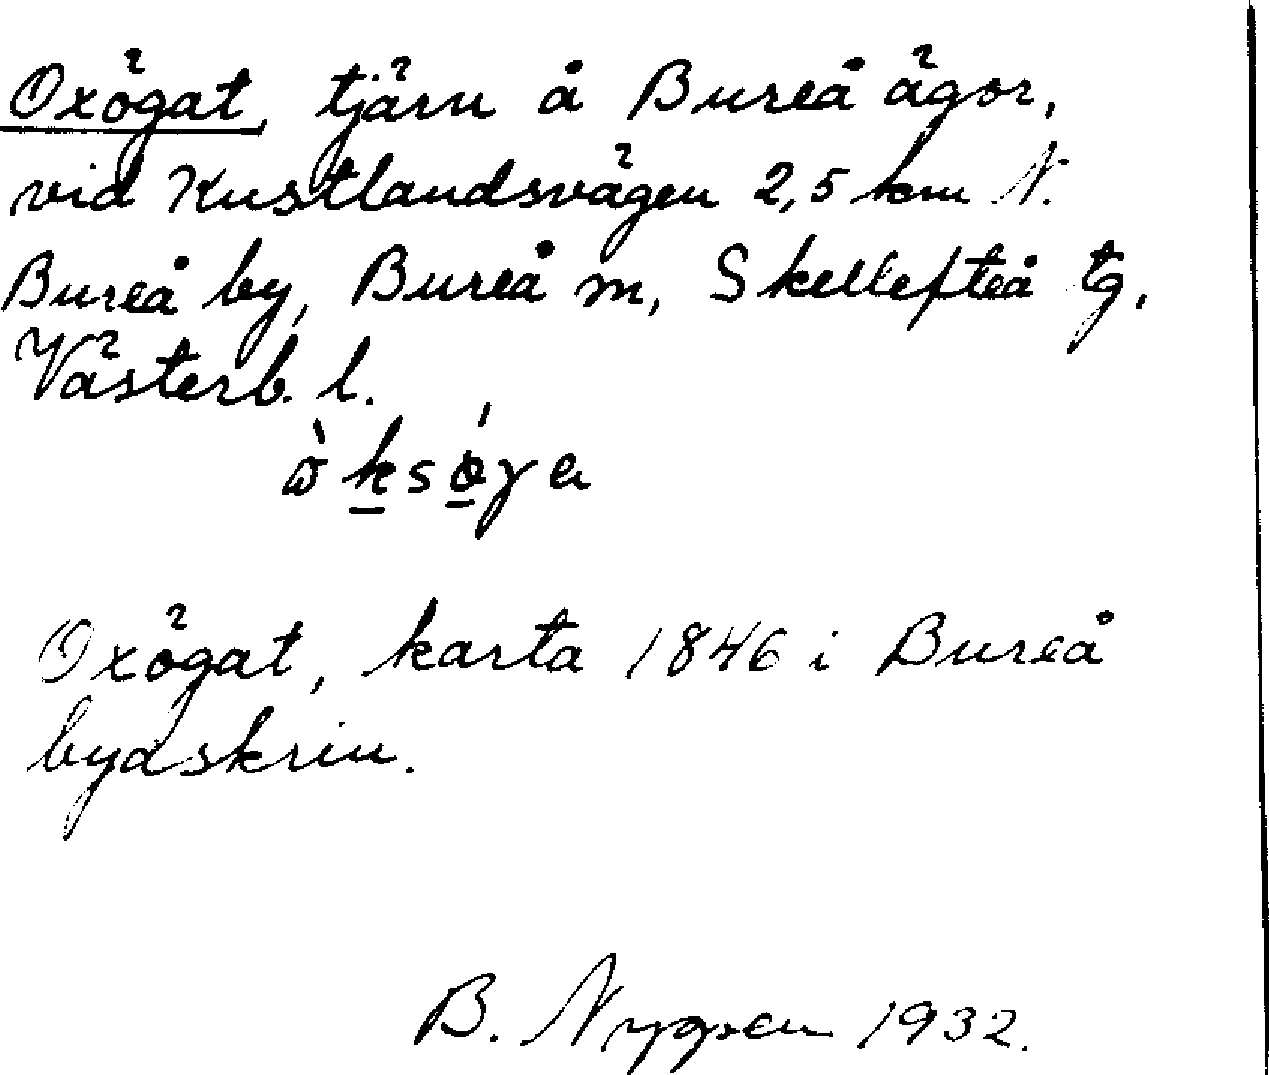 Oxögat, tjärn å Bureå ägor,
vid Kustlandsvägen 2,5 km N.
Bureå by, Bureå m, Skellefteå tg,
Västerb. l.
Oxögat, karta 1846 i Bureå
byaskrin.
B. Nygren 1932.